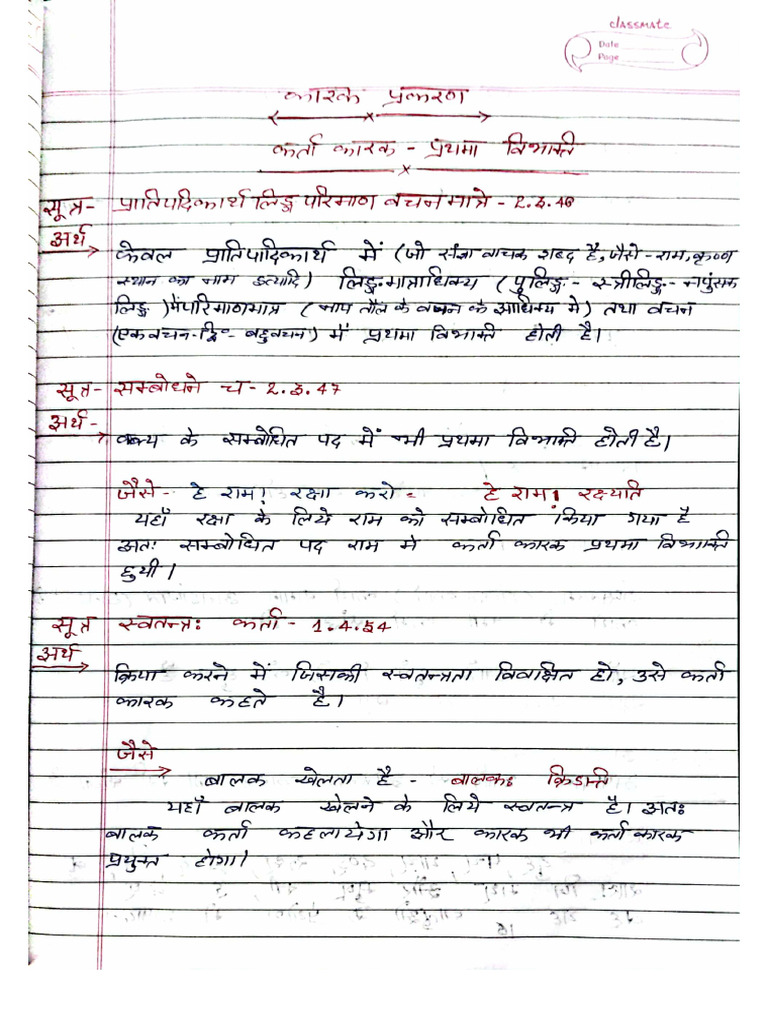 classmate
Date
Page
कारक प्रकरण
कर्ता कारक - प्रथमा विभक्ति
सूत्र- प्रातिपदिकार्थ लिङ्ग परिमाण वचन मात्रे - 2.3.46
अर्थ
केवल प्रातिपादिकार्थ में (जो संज्ञा वाचक शब्द है, जैसे - राम, कृष्ण
स्थान का नाम इत्यादि) लिङ्गमात्राधिक्य (पुलिङ्ग - स्त्रीलिङ्ग - नपुंसक
लिङ्ग) में परिमाणमात्र (नाप तौल के वचन के आधिक्य मे) तथा वचन
(एकवचन-द्वि०- बहुवचन) में प्रथमा विभक्ति होती है।
सूत्र- सम्बोधने च - 2.3.47
अर्थ-
के सम्बोधित पद में भी प्रथमा विभक्ति होती है।
जैसे - हे राम! रक्षा करो = हे राम! रक्ष्यति
यहाँ रक्षा के लिये राम को सम्बोधित किया गया है
अतः सम्बोधित पद राम मे कर्ता कारक प्रथमा विभक्ति
हुयी।
सूत्र स्वतन्त्रः कर्ता - 1.4.54
अर्थ
क्रिया करने में जिसकी स्वतन्त्रता विवक्षित हो, उसे कर्ता
कारक कहते है।
जैसे
बालक खेलता है - बालकः क्रिडति
यहाँ बालक खेलने के लिये स्वतन्त्र है। अतः
बालक कर्ता कहलायेगा और कारक भी कर्ता कारक
प्रयुक्त होगा।